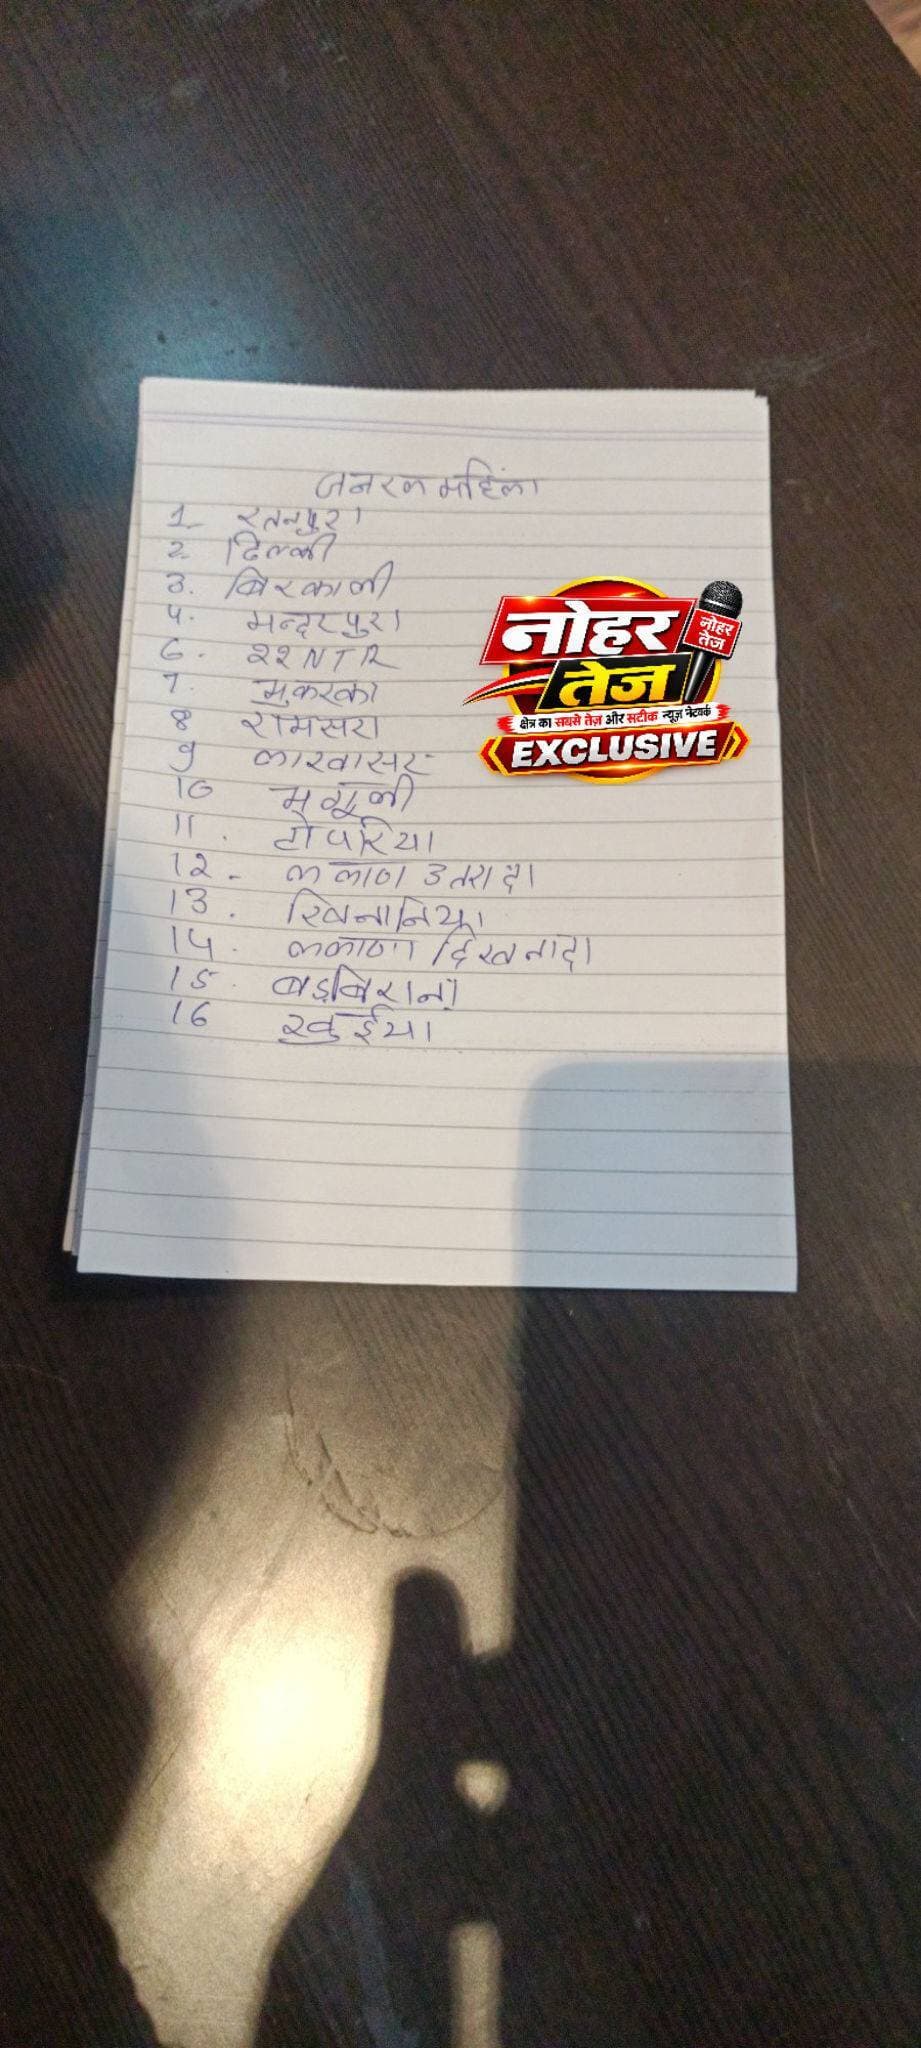 जनरल महिला
1 रतनपुरा
2. दिल्की
3. बिरकाली
4. मन्दरपुरा
6. 22 NTR
7. मुकरका
8 रामसरा
9 लाखासर
10 मुन्गुली
11. टोपरिया
12. ललाणा उतरादा
13. खिनानिया
14. ललाणा दिखनादा
15. बडबिराना
16 खुईया
नोहर
तेज
नोहर
तेज
क्षेत्र का सबसे तेज़ और सटीक न्यूज़ नेटवर्क
EXCLUSIVE